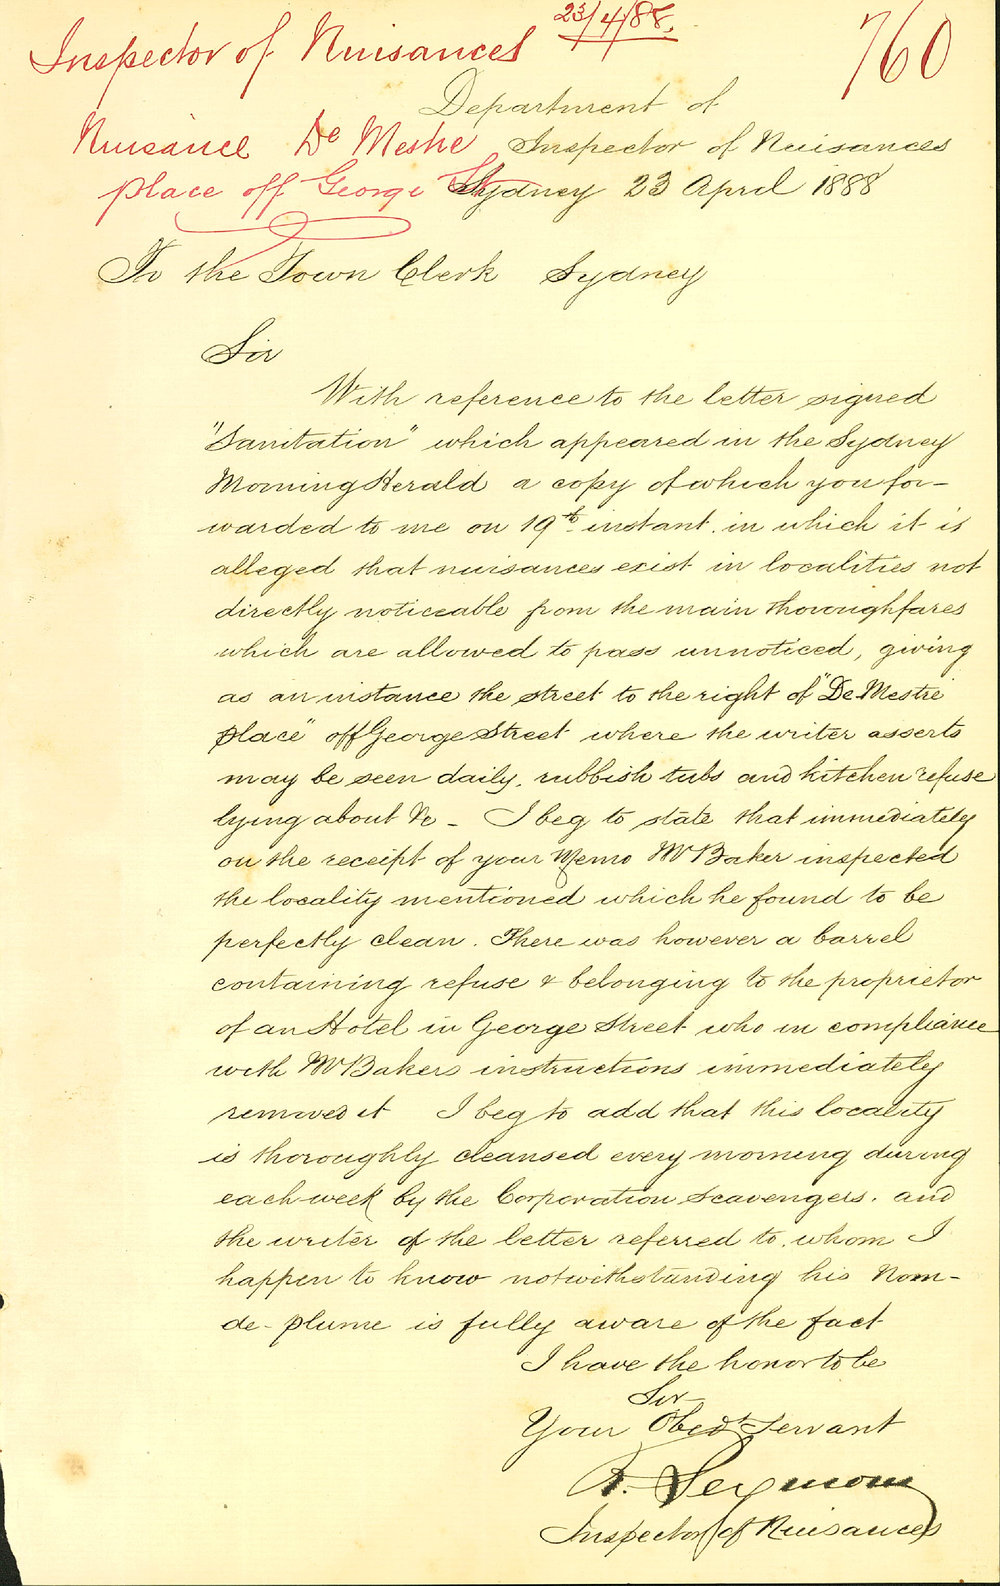 23/4/88.
Inspector of Nuisances
760
Department of
Nuisance De Mestre Inspector of Nuisances
place off George St Sydney 23 April 1888
To the Town Clerk Sydney
Sir
With reference to the letter signed
"Sanitation" which appeared in the Sydney
Morning Herald a copy of which you for-
warded to me on 19th instant. in which it is
alleged that nuisances exist in localities not
directly noticeable from the main thoroughfares
which are allowed to pass unnoticed, giving
as an instance the street to the right of "De Mestre
place" off George Street where the writer asserts
may be seen daily, rubbish tubs and kitchen refuse
lying about &c - I beg to state that immediately
on the receipt of your Memo Mr Baker inspected
the locality mentioned which he found to be
perfectly clean. There was however a barrel
containing refuse & belonging to the proprietor
of an Hotel in George Street who in compliance
with Mr Bakers instructions immediately
removed it I beg to add that this locality
is thoroughly cleansed every morning during
each week by the Corporation Scavengers. and
the writer of the letter referred to. whom I
happen to know notwithstanding his Nom-
de-plume is fully aware of the fact
I have the honor to be
Sir
Your Obedt Servant
R. Seymour
Inspector of Nuisances